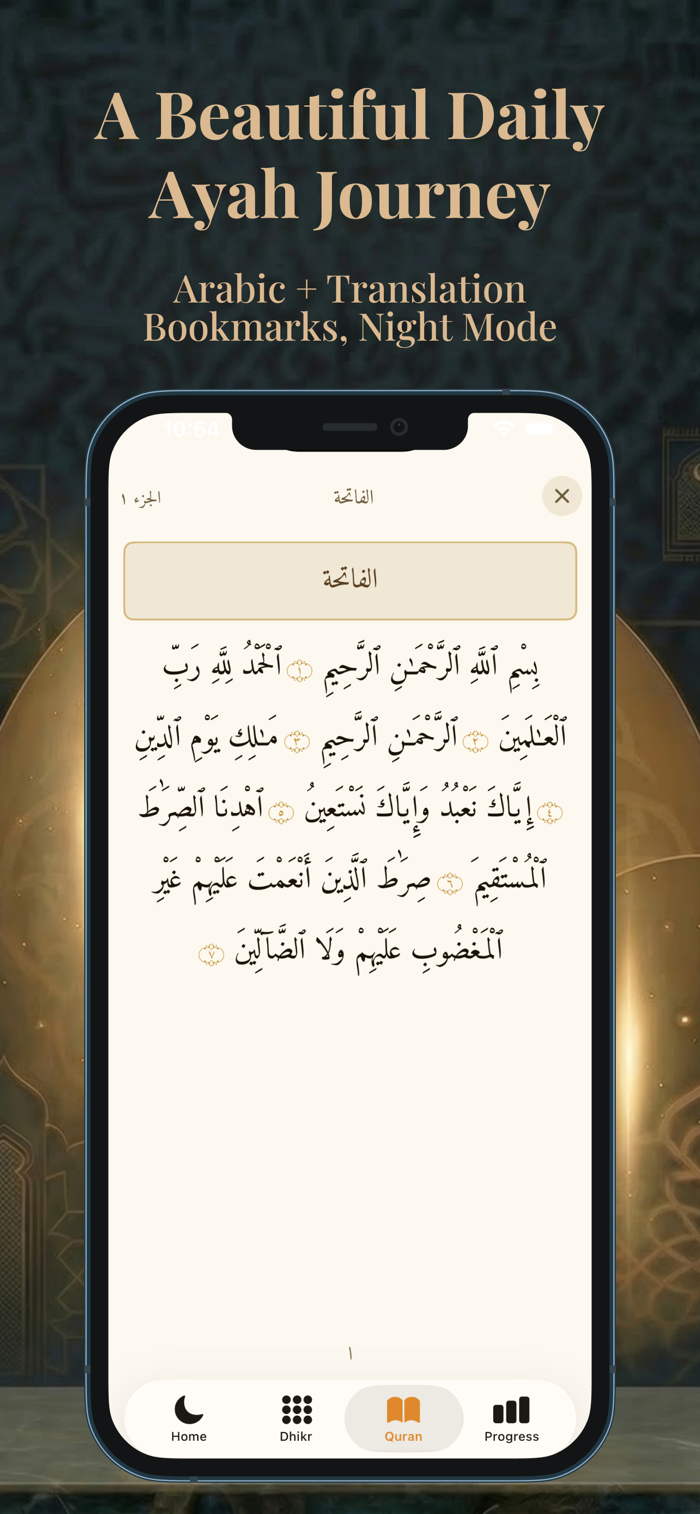 A Beautiful Daily
Ayah Journey
Arabic + Translation
Bookmarks, Night Mode
10:54
الجزء ١
الفاتحة
الفاتحة
بِسْمِ ٱللَّهِ ٱلرَّحْمَـٰنِ ٱلرَّحِيمِ ١ ٱلْحَمْدُ لِلَّهِ رَبِّ
ٱلْعَـٰلَمِينَ ٢ ٱلرَّحْمَـٰنِ ٱلرَّحِيمِ ٣ مَـٰلِكِ يَوْمِ ٱلدِّينِ
٤ إِيَّاكَ نَعْبُدُ وَإِيَّاكَ نَسْتَعِينُ ٥ ٱهْدِنَا ٱلصِّرَٰطَ
ٱلْمُسْتَقِيمَ ٦ صِرَٰطَ ٱلَّذِينَ أَنْعَمْتَ عَلَيْهِمْ غَيْرِ
ٱلْمَغْضُوبِ عَلَيْهِمْ وَلَا ٱلضَّآلِّينَ ٧
١
Home
Dhikr
Quran
Progress